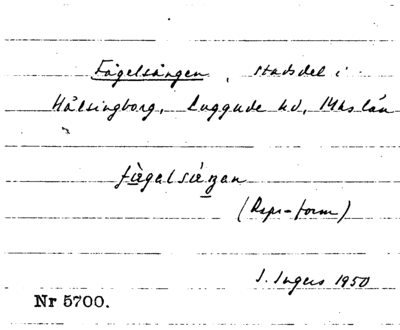 Fågelsången, stadsdel i
Hälsingborg, Luggude hd, Mhs län
fågelsåŋen
(Rspr-form)
I. Ingers 1950
Nr 5700.